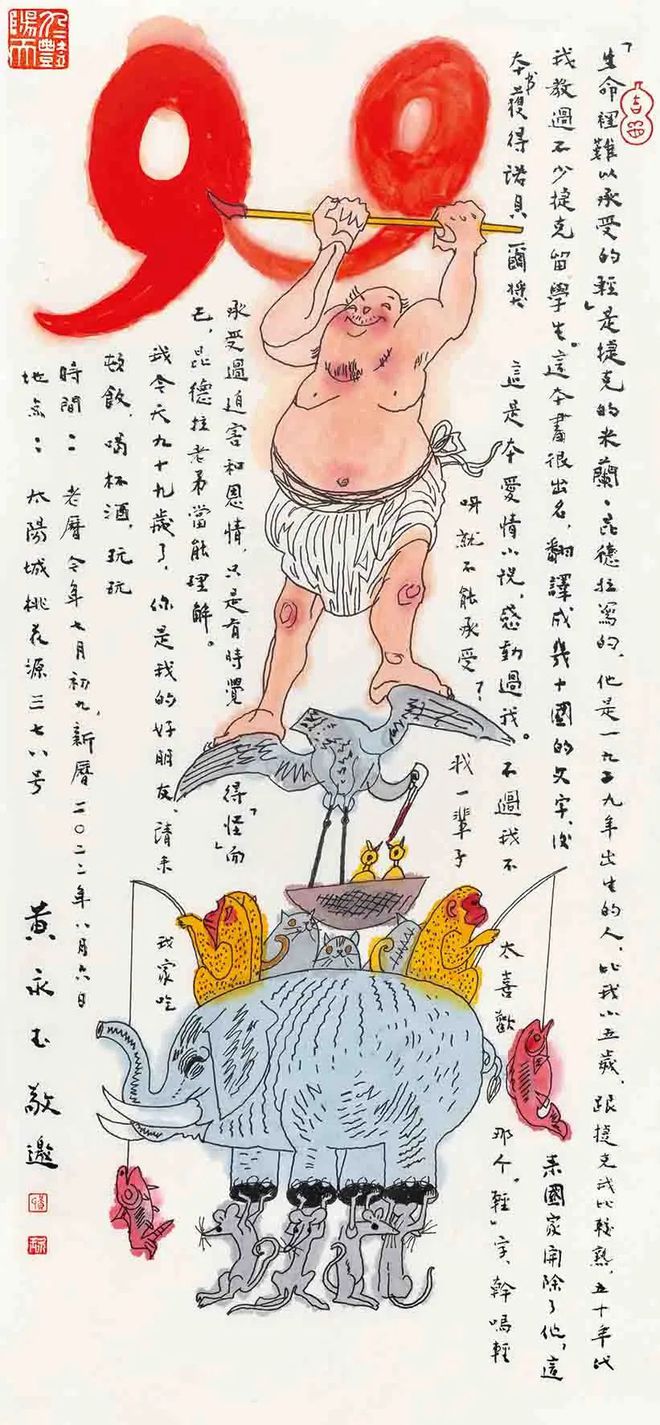 「生命裡難以承受的輕」是捷克的米蘭·昆德拉寫的,他是一九二九年出生的人,比我小五歲,跟捷克我比較熟,五十年代
我教過不少捷克留學生。這本書很出名,翻譯成幾十國的文字,後來國家開除了他,這
本書獲得諾貝爾獎 這是本愛情小說,感動過我。不過我不太喜歡那个"輕"字,幹嗎輕
呀就不能承受?我一輩子
承受過迫害和恩情,只是有時覺得「怪」而
已,昆德拉老弟當能理解。
我今天九十九歲了,你是我的好朋友,請來我家吃
頓飯,喝杯酒,玩玩
時間:老曆今年七月初九,新曆二〇二二年八月六日
地点:太陽城桃花源三七八号
黃永玉敬邀